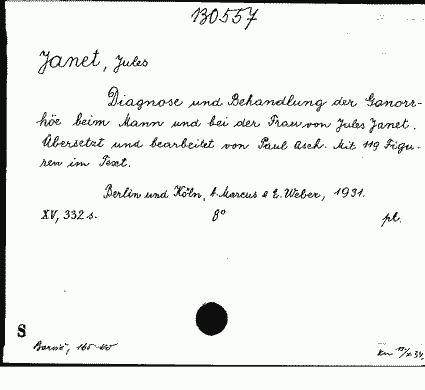 130557
Janet, Jules
Diagnose und Behandlung der Gonorr-
höe beim Mann und bei der Frau von Jules Janet.
Übersetzt und bearbeitet von Paul Asch. Mit 119 Figu-
ren im Text.
Berlin und Köln, A. Marcus & E. Weber, 1931.
XV, 332 s. 8° pl.
S